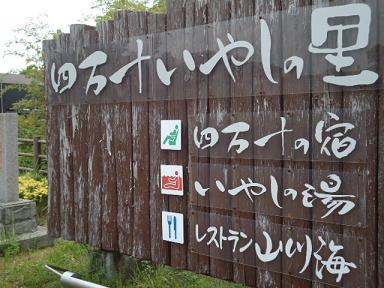 四万十いやしの里
四万十の宿
いやしの湯
レストラン山川海